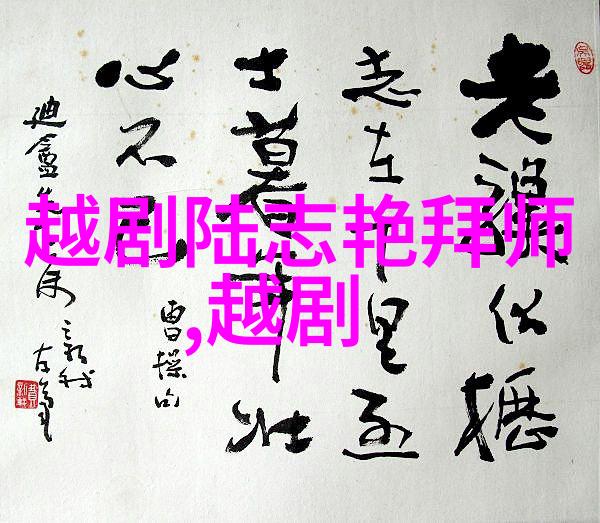 越剧陆志艳拜师
,越剧
老驥伏櫪
志在千里烈
士暮年壮
心不已
曹操句